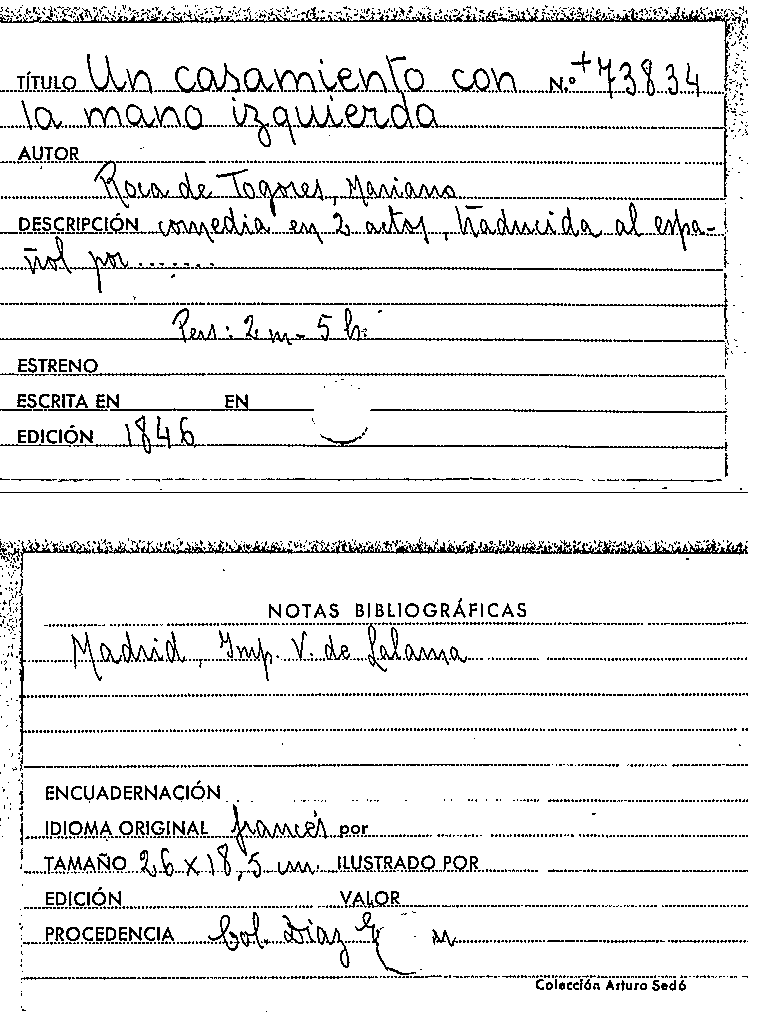 TÍTULO Un casamiento con N.º +73834
la mano izquierda
AUTOR
Roca de Togores, Mariano
DESCRIPCIÓN comedia en 2 actos, traducida al espa-
ñol por .......
Pers: 2 m - 5 h.
ESTRENO
ESCRITA EN EN
EDICIÓN 1846
NOTAS BIBLIOGRÁFICAS
Madrid, Imp. V. de Lalama
ENCUADERNACIÓN
IDIOMA ORIGINAL francés por
TAMAÑO 26 x 18,5 cm. ILUSTRADO POR
EDICIÓN VALOR
PROCEDENCIA Col. Díaz
Colección Arturo Sedó